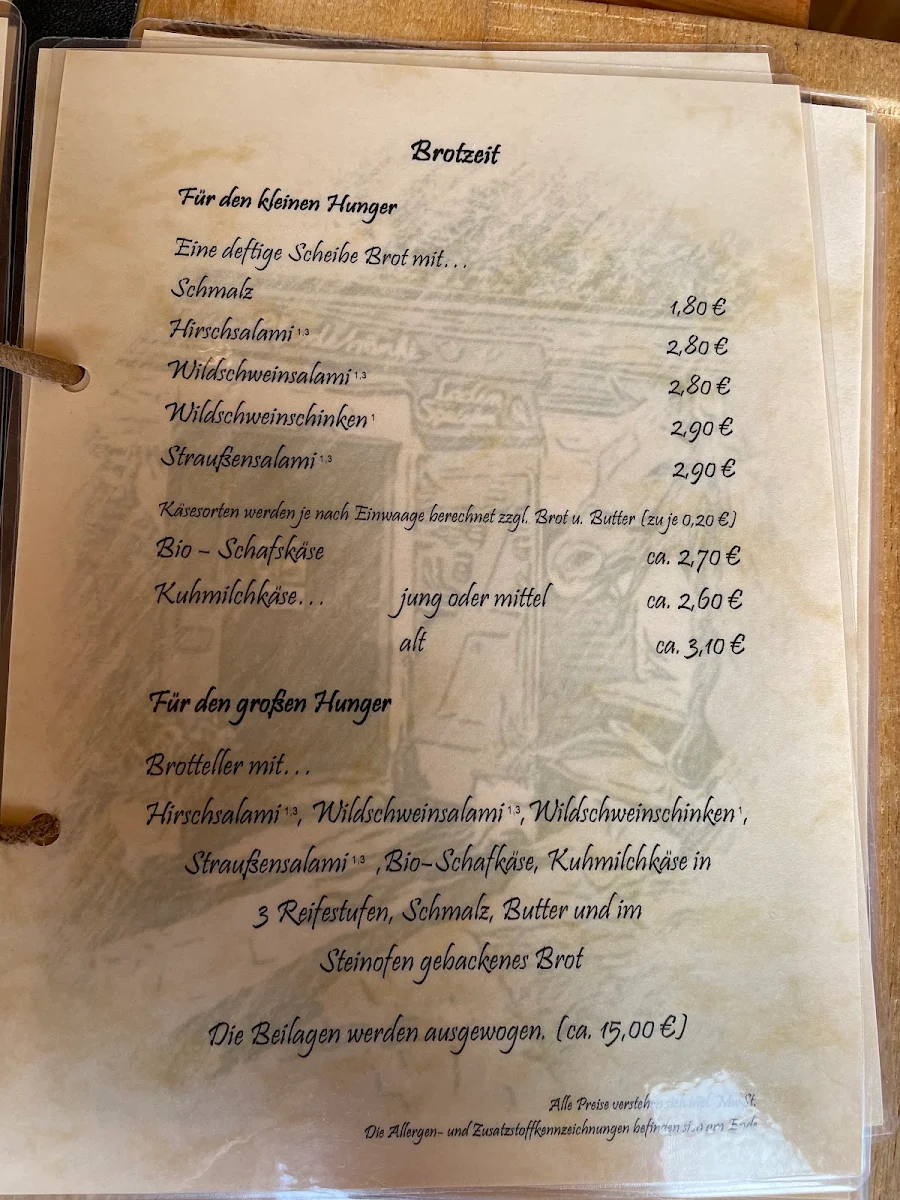 Brotzeit
Für den kleinen Hunger
Eine deftige Scheibe Brot mit...
Schmalz 1,80 €
Hirschsalami 1,3 2,80 €
Wildschweinsalami 1,3 2,80 €
Wildschweinschinken 1 2,90 €
Straußensalami 1,3 2,90 €
Käsesorten werden je nach Einwaage berechnet zzgl. Brot u. Butter (zu je 0,20 €)
Bio – Schafskäse ca. 2,70 €
Kuhmilchkäse... jung oder mittel ca. 2,60 €
alt ca. 3,10 €
Für den großen Hunger
Brotteller mit...
Hirschsalami 1,3, Wildschweinsalami 1,3, Wildschweinschinken 1,
Straußensalami 1,3 , Bio–Schafkäse, Kuhmilchkäse in
3 Reifestufen, Schmalz, Butter und im
Steinofen gebackenes Brot
Die Beilagen werden ausgewogen. (ca. 15,00 €)
Alle Preise verstehen sich inkl. MwSt.
Die Allergen- und Zusatzstoffkennzeichnungen befinden sich am Ende